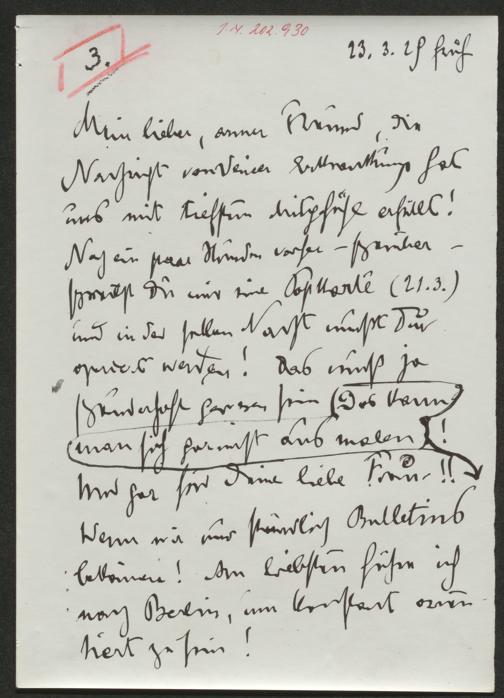 I.N. 202.930
3.
23.3.25 früh
Mein lieber, armer Freund, die
Nachricht von Deiner Erkrankung hat
uns mit tiefstem Mitgefühl erfüllt!
Noch ein paar Stunden vorher – –
schreibst Du mir eine Postkarte (21.3.)
und in der selben Nacht musst Du
operiert werden! Das muß ja
schauderhaft gewesen sein (Das kann
man sich gar nicht ausmalen)!
Und gar für Deine liebe Frau !!
Wenn wir nur stündlich Bulletins
bekämen! Am liebsten führe ich
nach Berlin, um konstant orien
tiert zu sein!